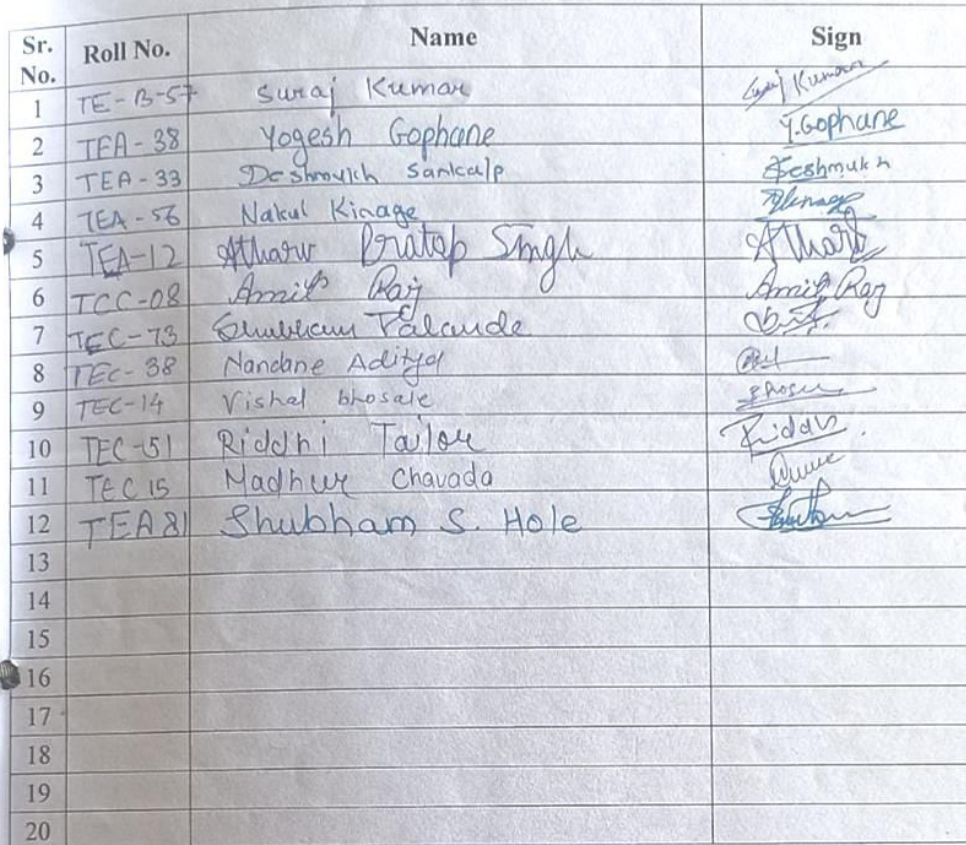 Sr. No. Roll No. Name Sign
1 TE-B-57 Suraj Kumar Suraj Kumar
2 TEA-38 Yogesh Gophane Y.Gophane
3 TEA-33 Deshmukh Sankalp Deshmukh
4 TEA-56 Nakul Kinage
5 TEA-12 Atharv Pratap Singh Atharv
6 TCC-08 Amit Raj Amit Raj
7 TEC-73 Shubham Talande
8 TEC-38 Nandane Aditya
9 TEC-14 Vishal bhosale
10 TEC-51 Riddhi Tailor
11 TEC 15 Madhur Chavada
12 TEA81 Shubham S. Hole
13
14
15
16
17
18
19
20